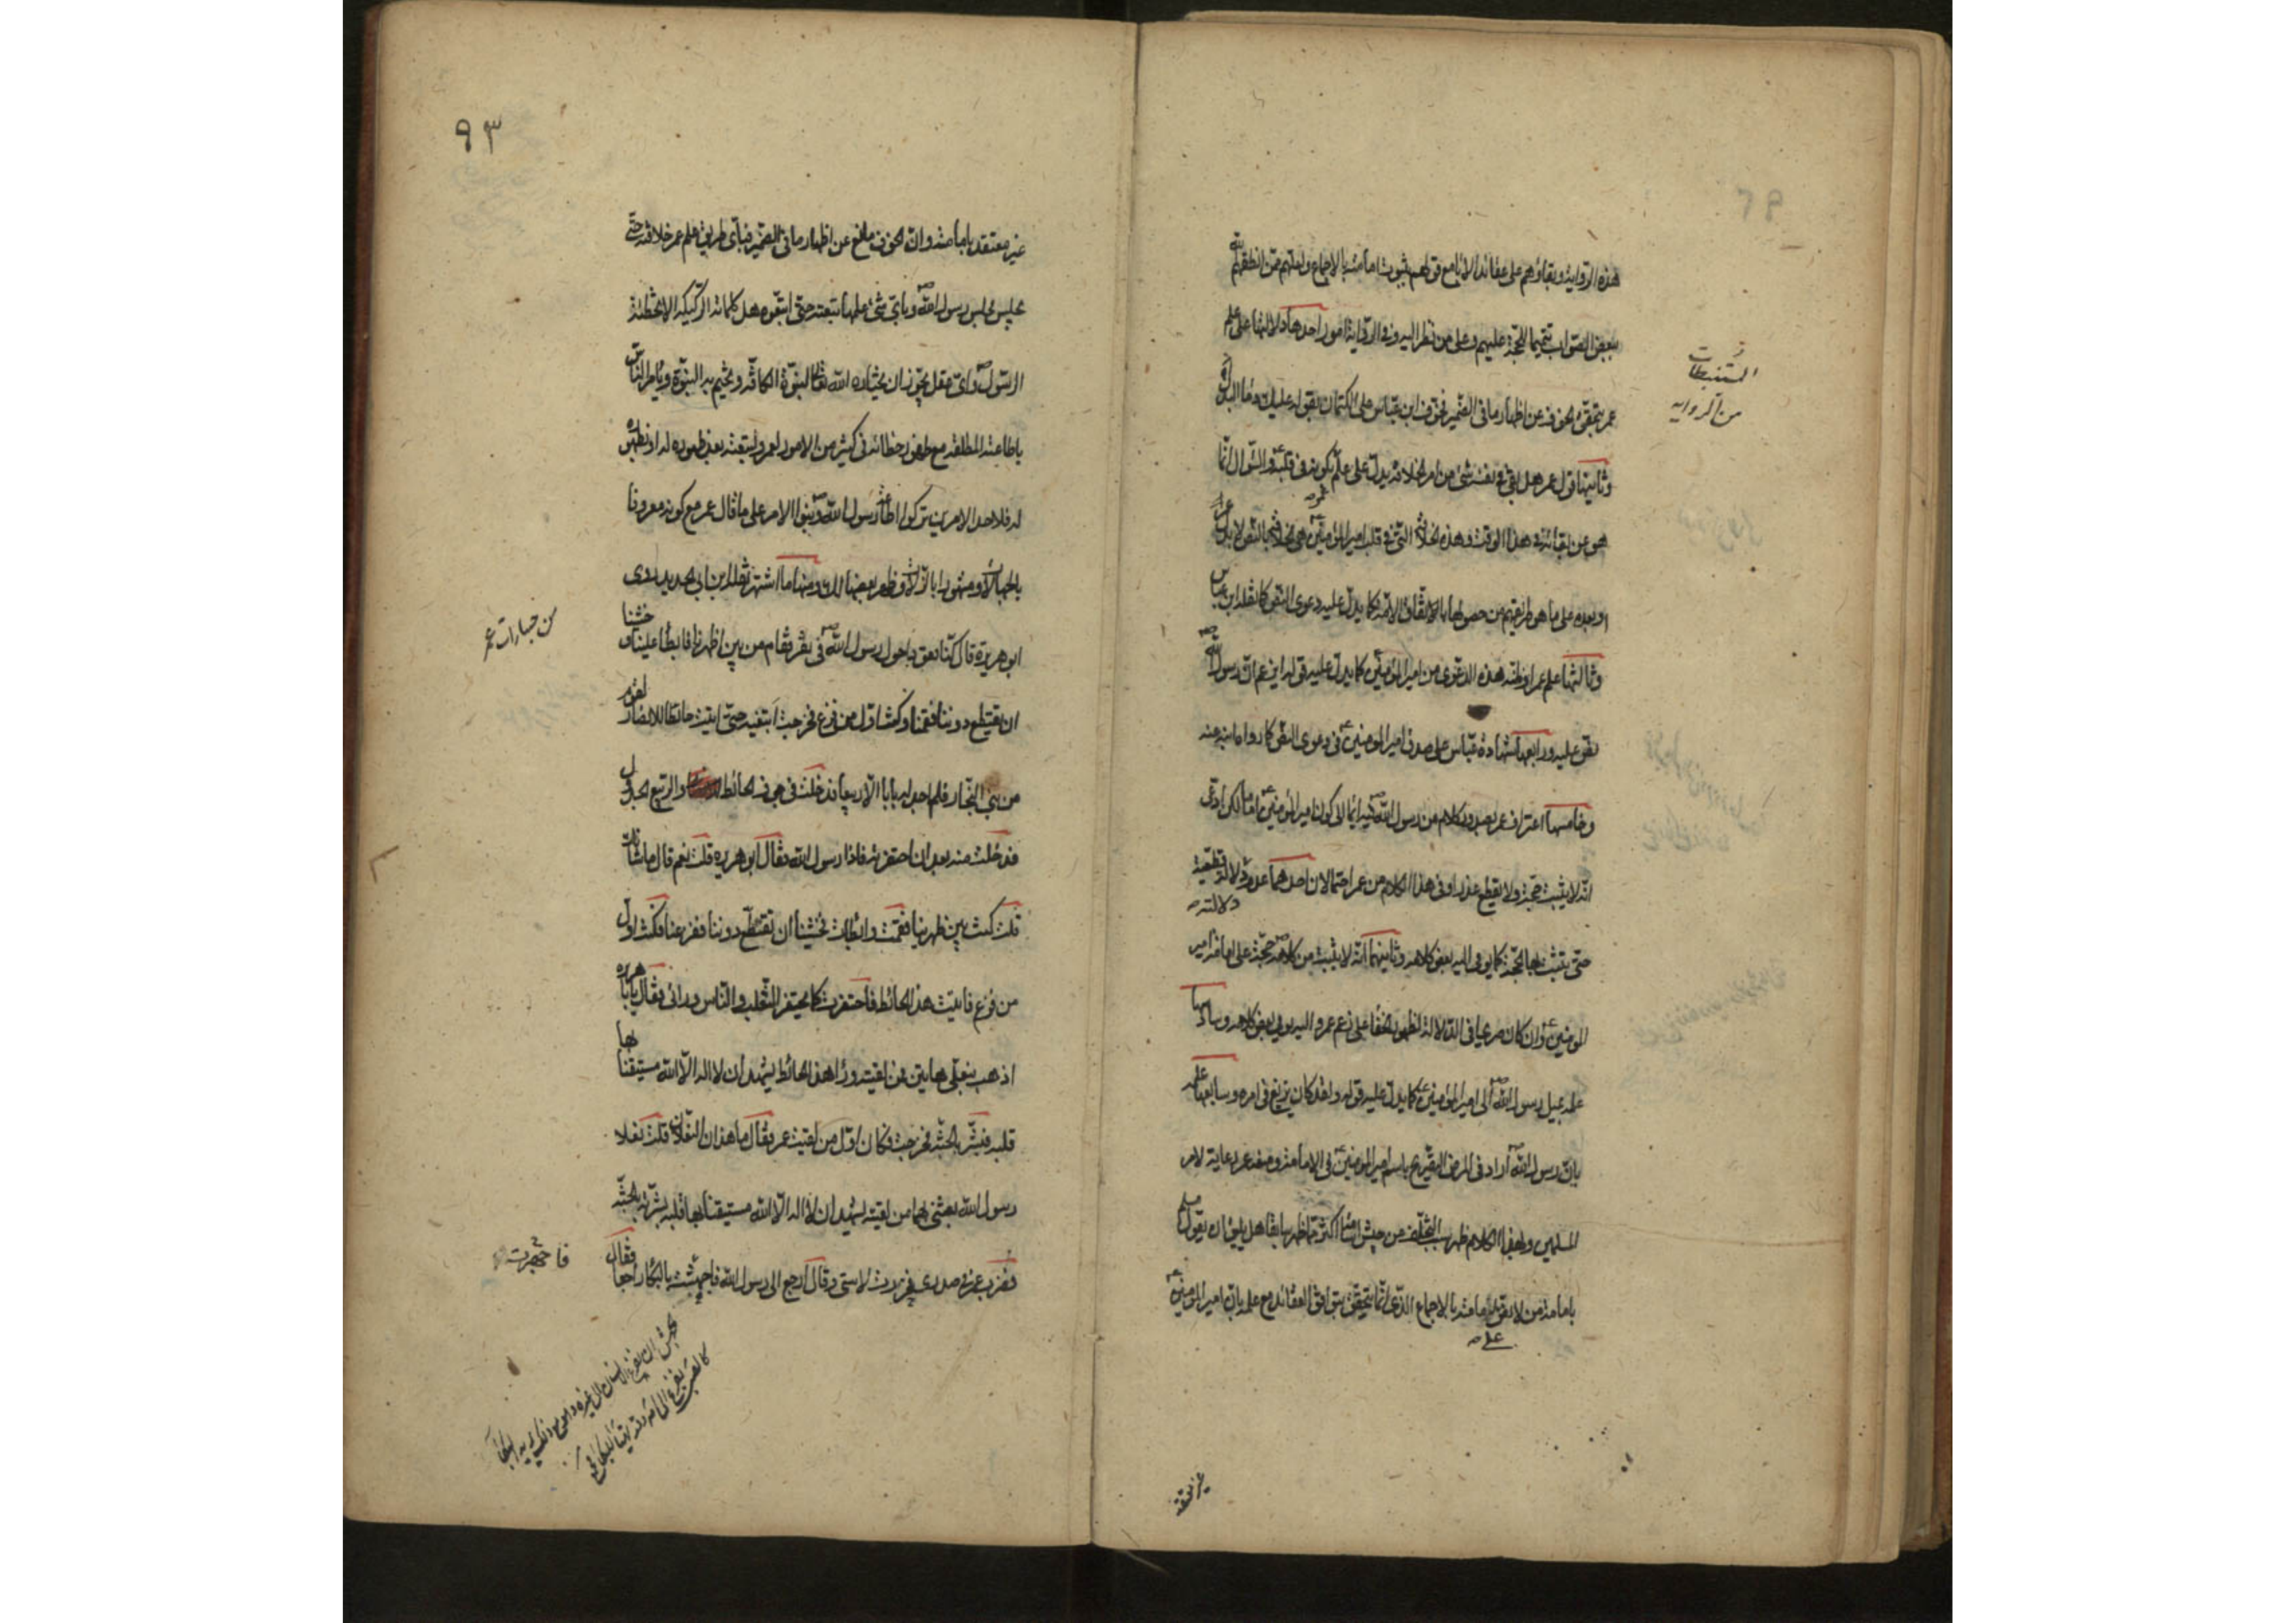 هذه الرواية وبقاؤهم على عقائد الآباء مع قولهم بثبوت امامته بالاجماع ولعلهم ممن انطقهم الله
ببعض الصواب تتميما للحجة عليهم وعلى من نظر اليه وفي الرواية امور احدها دلالتها على علم
عمر بتحقق الخوف عن اظهار ما في الضمير فخوف ابن عباس على الكتمان بقوله عليك دماء البدن
وثانيها قول عمر هل بقي في نفسه شئ من امر الخلافة يدل على علمه بكونه في قلبه والسؤال انما
هو عن بقائه في هذا الوقت وهذه الخلافة التي في قلب امير المؤمنين هي الخلافة بالنص لا بدل عمر
او بعده على ما هو طريقتهم من حصولها بالاتفاق كما يدل عليه دعوى النص كما نقله ابن عباس
وثالثها علم عمر او ظنه هذه الدعوى من امير المؤمنين كما يدل عليه قوله ايزعم ان رسول الله
نص عليه ورابعها شهادة عباس على صدق امير المؤمنين في دعوى النص كما رواه ابنه عنه
وخامسها اعتراف عمر بصدور كلام من رسول الله فيه ايماء الى كون امير المؤمنين اماما لكن ادعى
انه لا يثبت حجة ولا يقطع عذرا وفي هذا الكلام من عمر احتمالان احدهما عدم دلالة قطعية
دلالته
حتى يثبت بها الحجة كما يومي اليه بعض كلامه وثانيهما انه لا يثبت من كلامه حجة على امامة امير
المؤمنين وان كان صريحا في الدلالة لظهور الخفاء على زعم عمر واليه يومي بعض كلامه وسادسها
علمه بميل رسول الله الى امير المؤمنين كما يدل عليه قوله ولقد كان يربع في امره وسابعها علمه
بان رسول الله اراد في المرض التصريح باسم امير المؤمنين في الامامة ومنعه عمر رعاية لامر
المسلمين ولهذا الكلام ظهر سبب التخلف من جيش اسامة اكثر مما ظهر سابقا هل يليق ان يقول مسلم
بامامة من لا يقول بامامته بالاجماع الذي انما يتحقق بتوافق العقائد مع علمه بان امير المؤمنين
علي
المستنبطات
من الرواية
غير معتقد
٩٣
غير معتقد بامامته وان الخوف مانع عن اظهار ما في الضمير فباي طريق علم عمر خلافته حتى
يجلس مجلس رسول الله وباي شئ علمها تبعته حتى اتبعوه هل كلماته الركيكة الا تخطئة
الرسول واي عقل يجوز ان يختاره الله تعالى لنبوة الكافة ويختم به النبوة ويامر الناس
باطاعته المطلقة مع ظهور خطائه في كثير من الامور لعمر ولتبعته بعد ظهوره له او ظهوره
له فلاحد الامرين تركوا اطاعة رسول الله وبنوا الامر على ما قال عمر مع كونه معروفا
بالجهالات ومشهورا بالزلات وظهر بعضها لك ومنها ما اشتهر نقله ابن ابي الحديد روى
ابو هريرة قال كنا قعودا حول رسول الله في نفر فقام من بين اظهرنا فابطأ علينا وخشينا
ان يقتطع دوننا فقمنا وكنت اول من فزع فخرجت ابتغيه حتى اتيت حائطا للانصار لقوم
من بني النجار فلم اجد له بابا الا ربيعا فدخلت في جوف الحائط والربيع الجدول
فدخلت منه بعد ان احتفزته فاذا رسول الله فقال ابو هريرة قلت نعم قال ما شانك
قلت كنت بين ظهرينا فقمت وابطأت فخشينا ان تقتطع دوننا ففزعنا فكنت اول
من فزع فاتيت هذا الحائط فاحتفزت كما يحتفز الثعلب والناس ورائي فقال يا ابا هريرة
اذهب بنعلي هاتين فمن لقيته وراء هذا الحائط يشهد ان لا اله الا الله مستيقنا بها
قلبه فبشره بالجنة فخرجت فكان اول من لقيت عمر فقال ما هذان النعلان قلت نعلا
رسول الله بعثني بهما من لقيته يشهد ان لا اله الا الله مستيقنا بها قلبه بشرته بالجنة
فضرب عمر في صدري فخررت لاستي وقال ارجع الى رسول الله فاجهشت بالبكاء راجعا فقال
من جسارات عمر
الجهش ان يفزع الانسان الى غيره وهو مع ذلك يريد البكاء
كالصبي يفزع الى امه وقد تهيأ للبكاء